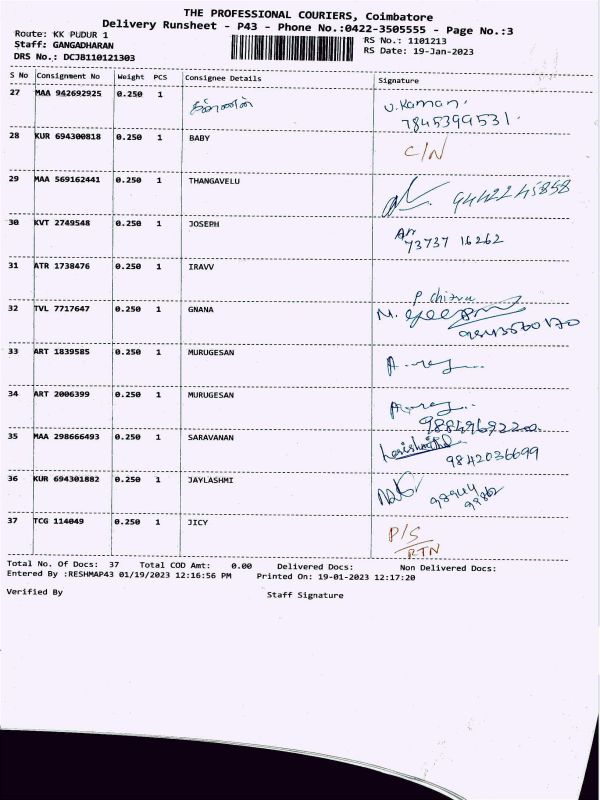 THE PROFESSIONAL COURIERS, Coimbatore
Delivery Runsheet - P43 - Phone No.:0422-3505555 - Page No.:3
Route: KK PUDUR 1
RS No.: 1101213
Staff: GANGADHARAN
RS Date: 19-Jan-2023
DRS No.: DCJ8110121303
S No Consignment No Weight PCS Consignee Details Signature
27 MAA 942692925 0.250 1 கண்ணன் U.Kannan.
7845399531.
28 KUR 694300818 0.250 1 BABY C/N
29 MAA 569162441 0.250 1 THANGAVELU 9442245858
30 KVT 2749548 0.250 1 JOSEPH
73737 16262
31 ATR 1738476 0.250 1 IRAVV
P chitra
32 TVL 7717647 0.250 1 GNANA M.
33 ART 1839585 0.250 1 MURUGESAN
34 ART 2006399 0.250 1 MURUGESAN
35 MAA 298666493 0.250 1 SARAVANAN
9842036699
36 KUR 694301882 0.250 1 JAYLASHMI
37 TCG 114049 0.250 1 JICY P/S
RTN
Total No. Of Docs: 37 Total COD Amt: 0.00 Delivered Docs: Non Delivered Docs:
Entered By :RESHMAP43 01/19/2023 12:16:56 PM Printed On: 19-01-2023 12:17:20
Verified By Staff Signature